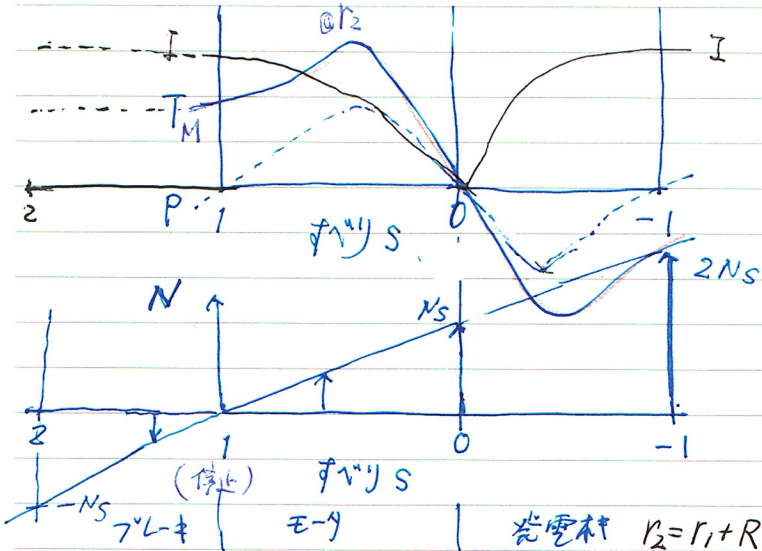 @r₂
I
I
T_M
2
P
1
0
-1
すべり S
N
N_S
2N_S
2
1
0
-1
(停止)
すべり S
-N_S
ブレーキ
モータ
発電機
r₂=r₁+R